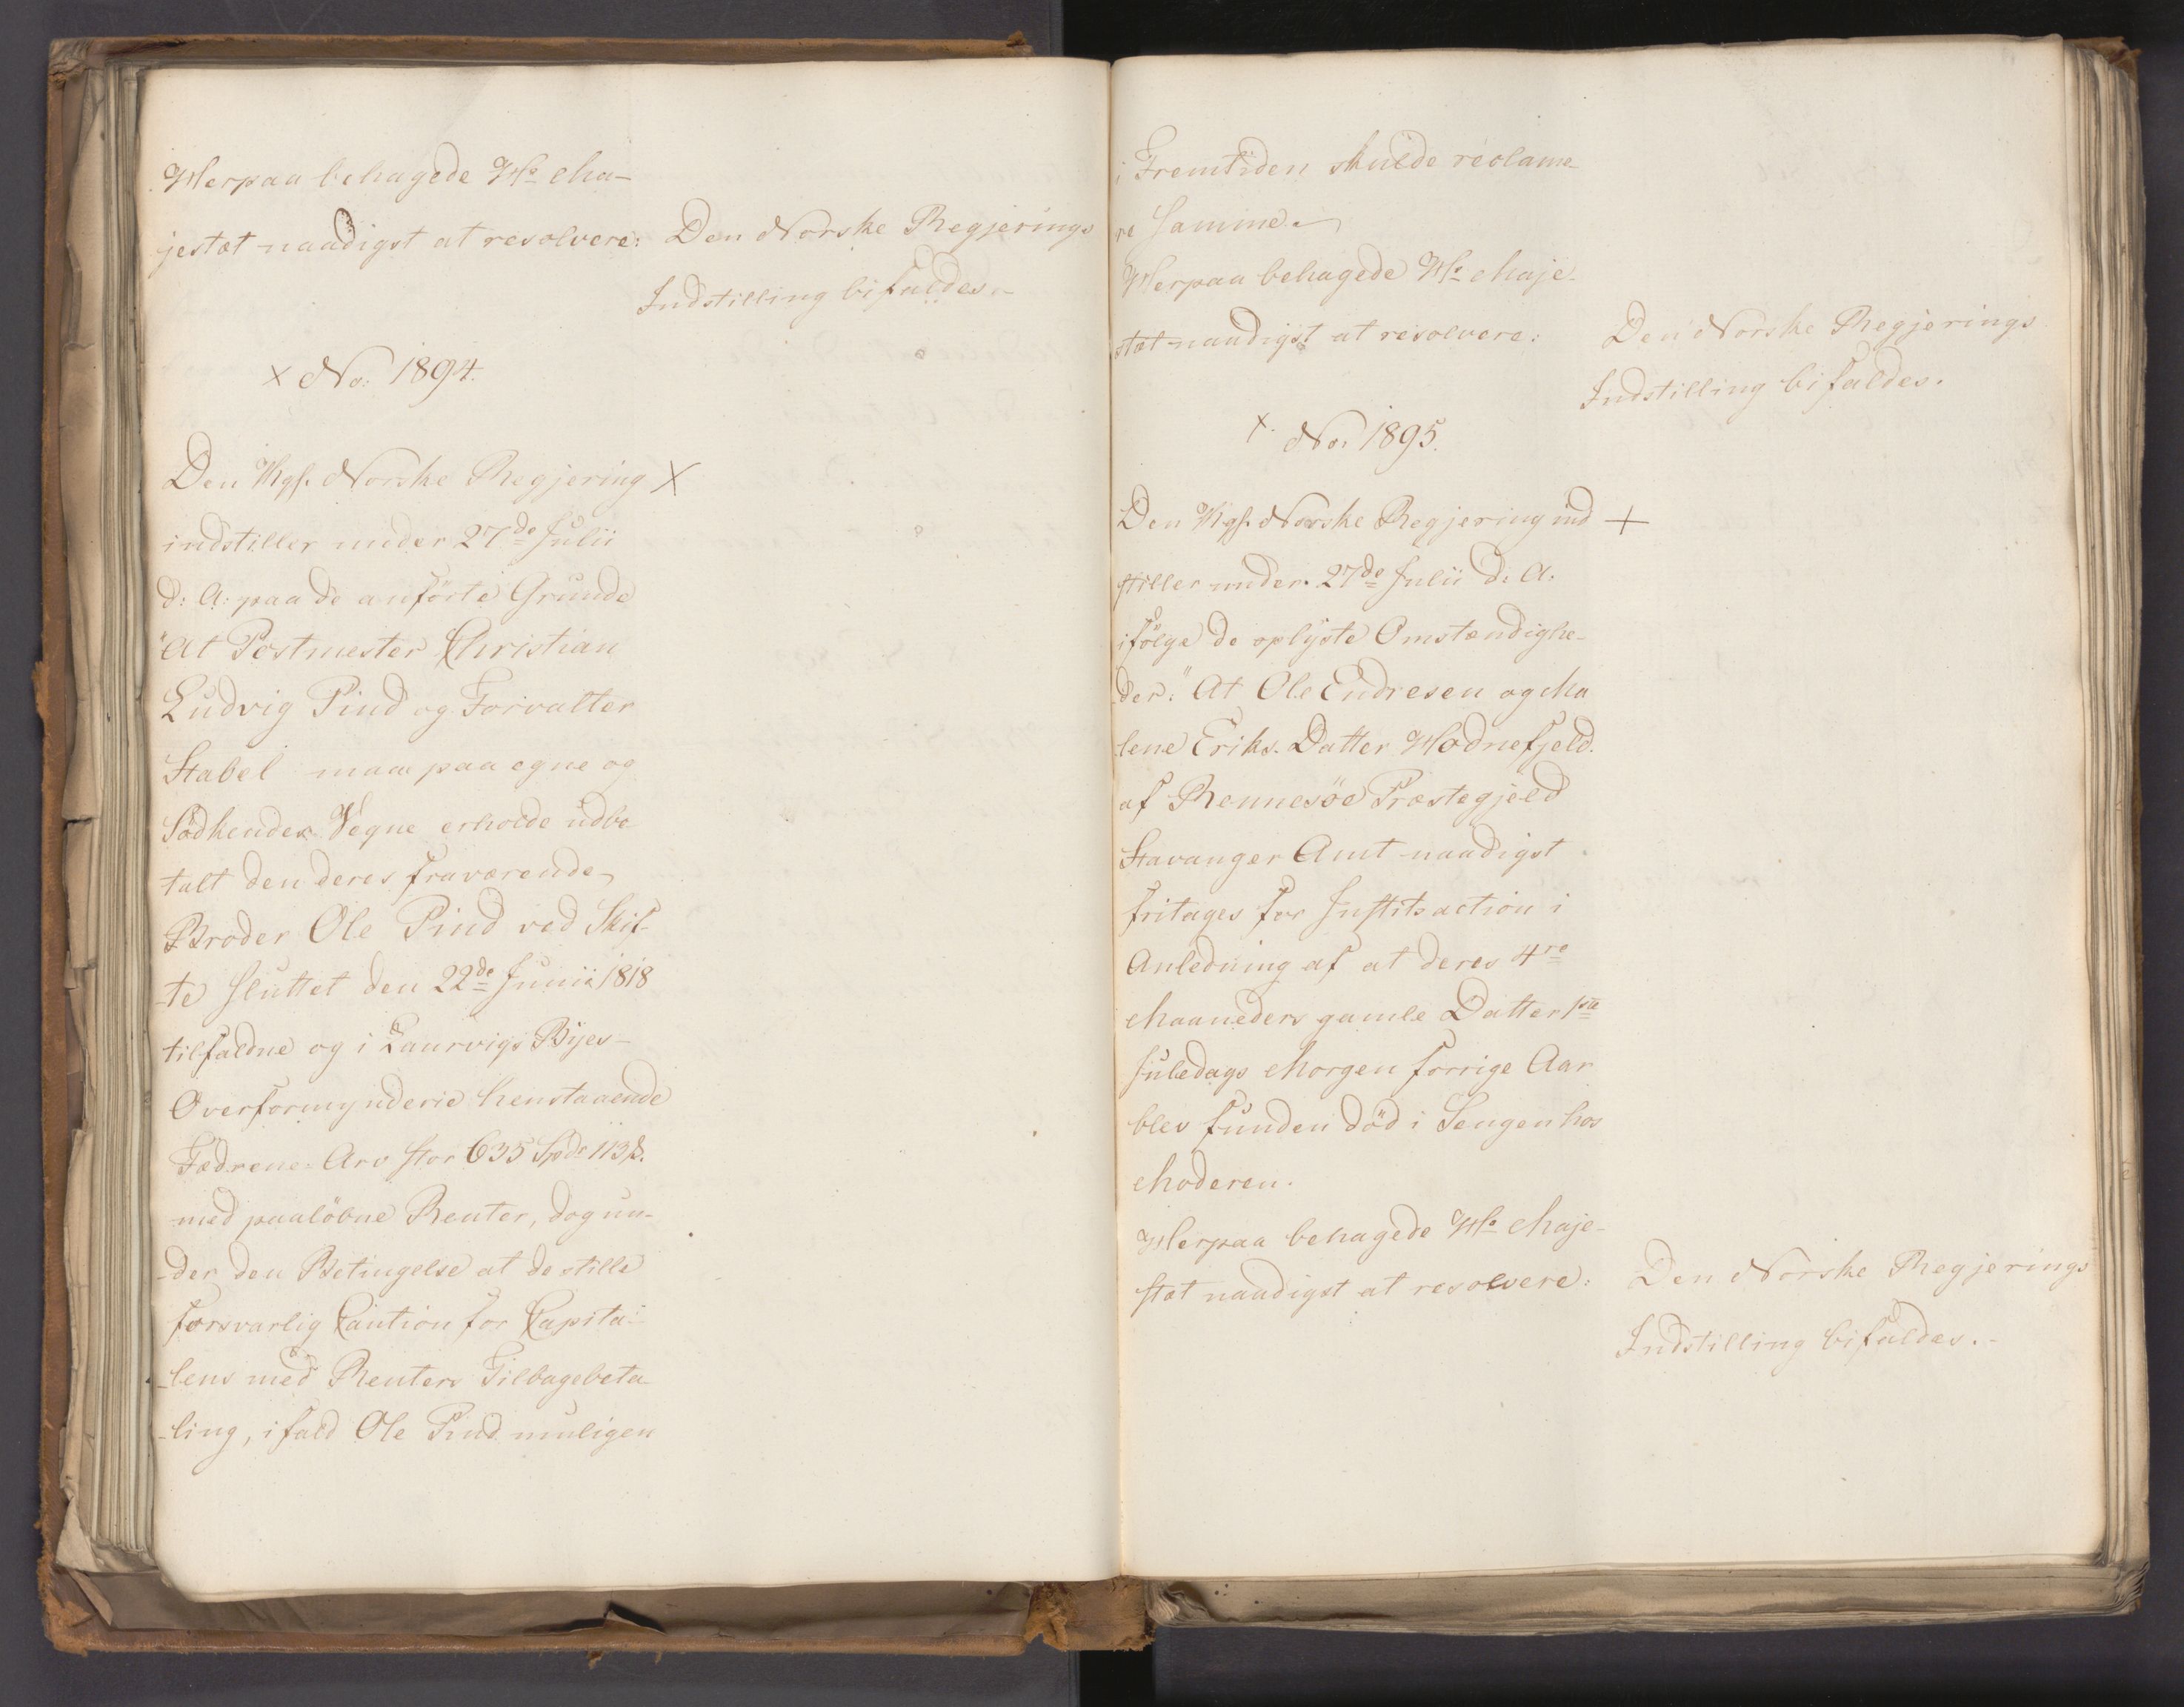 Herpaa behagede Hs Ma-
jestæt naadigst at resolvere: Den Norske Regjerings
Indstilling bifaldes.-
x No: 1894.
Den Kgl. Norske Regjering x
indstiller under 27de Julii
d: A: paa de anförte Grunde
"At Postmester Christian
Ludvig Pind og Forvalter
Stabel maae paa egne og
Södskendes Vegne erholde udbe-
talt den deres fraværende
Broder Ole Pind ved Skif-
te sluttet den 22de Junii 1818
tilfaldne og i Laurvigs Byes-
Overformynderie henstaaende
Fædrene-Arv stor 635 Spd. 113 s.
med paalöbne Renter, dog un-
-der den Betingelse at de stille
forsvarlig Caution for Capita-
-lens med Renters Tilbagebeta-
-ling, ifald Ole Pind muligen
i Fremtiden skulde reclame-
re samme.
Herpaa behagede Hs Maje-
stæt naadigst at resolvere: Den Norske Regjerings
Indstilling bifaldes.
x. No: 1895.
Den Kgl. Norske Regjering ind +
stiller under 27de Julii d: A:
ifölge de oplyste Omstændighe-
der: "At Ole Endresen og Ma
lene Eriks. Datter Hodnefjeld.
af Rennesöe Præstegjeld
Stavanger Amt naadigst
fritages for Justitsaction i
Anledning af at deres 4re
Maaneders gamle Datter 1ste
Juledags Morgen forrige Aar
blev funden död i Sengen hos
Moderen.
Herpaa behagede Hs Maje-
stæt naadigst at resolvere: Den Norske Regjerings
Indstilling bifaldes.-